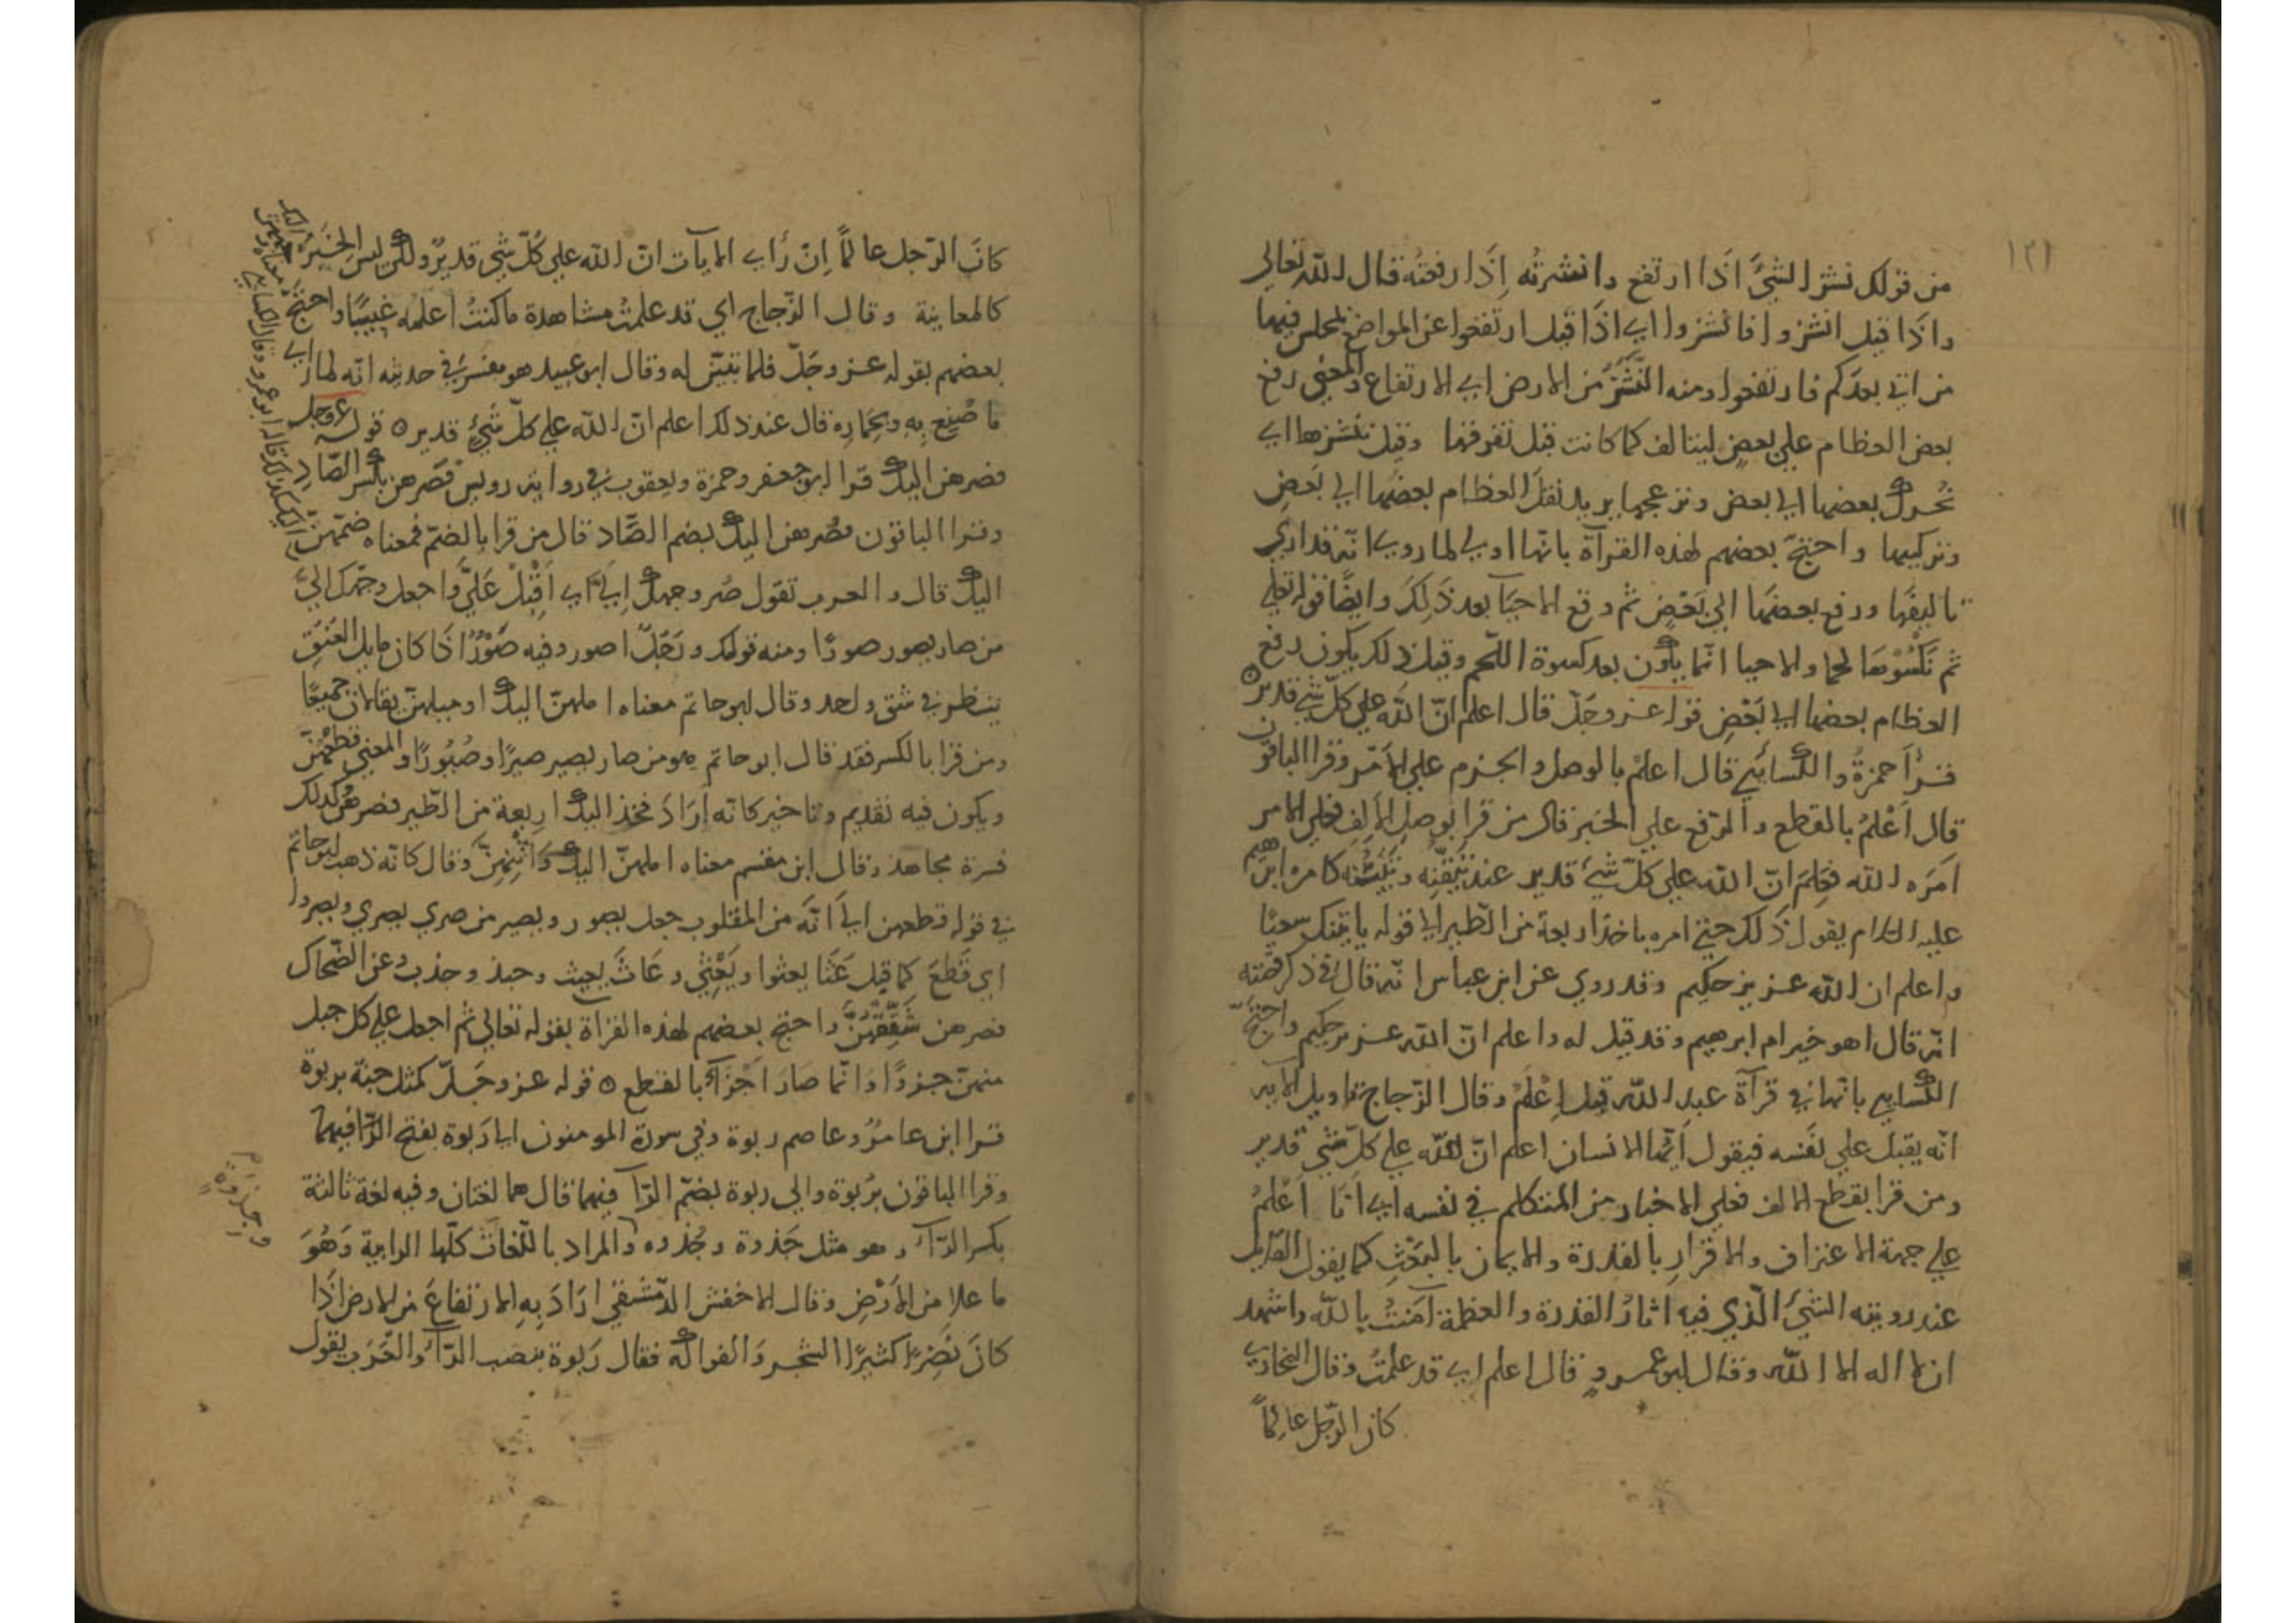 ١٢١
من قولك نشز الشئ اذا ارتفع وانشزته اِذَا رفعته قال الله تعالى
واذا قيل انشزوا فانشزوا اي اذا قيل ارتفعوا عن المواضع لمجلس فيها
من اتى بعدكم فارتفعوا ومنه النَّشَزُ من الارض اي الارتفاع والمعنى رفع
بعض العظام على بعض ليتالف كما كانت قبل تفرقها وقيل ننشزها اي
نُحرك بعضها الي بعض ونزعجها يريد نقل العظام بعضها الي بَعضٍ
وتركيبها واحتج بعضهم لهذه القرآة بانها اولى لما روي انّه قد اري
تاليفها ورفع بعضها الي بَعْضٍ ثم وقع الاحيآ بعد ذَلِكَ وايضًا قوله تعلى
ثم نَكْسُوهَا لحما والاحيا انّما يكون بعد كسوة اللّحم وقبل ذلك يكون رفع
العظام بعضها الي بَعْضٍ قوله عز وجَلّ قال اعلم انّ الله على كلّ شي قدير ه
قرأ حمزةُ والكسائي قال اعلمْ بالوصل والجزم على الأمر وقرا الباقون
قال أَعْلمُ بالقطع والرّفع على الخبر قال من قرا بوصل الألف فعلى الامر
امره الله فعلم انّ الله على كلّ شيْ قدير عند تيقّنه وتثبّته كامره ابرهيم
عليه السلام يقول ذَلك حين امره باخذ اربعة من الطّير الى قوله ياتينك سعيًا
واعلم ان الله عزيز حكيم وقد روي عن ابن عباس انّه قال في ذكر قصّته
انّه قال اهو خير ام ابرهيم وقد قيل له واعلم انّ الله عزيز حكيم واحتجّ
الكسايي بانّها في قرآة عبد الله قيل اِعْلَمْ وقال الزّجاج تاويل الآية
انّه يقبل على نَفسه فيقول أيّها الانسان اعلم انّ الله على كلّ شيْ قدير
ومن قرا بقطع الالف فعلى الاخبار من المتكلم في نفسه اي انَا أَعْلمُ
على جهة الاعتراف والاقرارِ بالقدرة والايمان بالبَعْثِ كما يقول القايل
عند رويته الشيْ الّذي فيه اثارُ القدرة والعظمة آمَنتُ بالله واشهد
ان لا اله الا الله وقال ابو عمرو قال اعلم اي قد علمتُ وقال
كان الرّجل عالماً
كانَ الرّجل عالماً اِنْ رَاي الايات انّ الله على كُلّ شي قدير ولكن ليس الخَبَر
كالمعاينة وقال الزّجاج اي قد علمتُ مشاهدة ما كنتُ اعلمه غيبًا واحتجّ
بعضهم بقوله عز وجَلّ فلما تبيّن له وقال ابو عبيد هو مفسرٌ في حديثه انّه لما راي
ما صُنِع بِهِ وبِحِمَارِه قال عند ذلك اعلم انّ الله على كلّ شَيْءٍ قدير ه قوله عز وجل
فصرهن اليك قرا ابو جعفر وحمزة ويعقوب في رواية رويس فَصِرهن بكسر الصّادِ
وقرا الباقون فصُرهن اليك بضم الصَّاد قال من قرا بالضمّ فمعناه ضمّهنّ
اليك قال والعرب تقول صُر وجهك اِليَّ اي اَقْبِلْ عَليَّ واجعل وجهك اليَّ
من صار يصور صورًا ومنه قولهم رجلٌ اصور وفيه صَوَرٌ اذَا كان مايل العُنق
ينظر في شق واحد وقال ابو حاتم معناه املهنّ اليك او ميلهنّ يقالان جميعًا
ومن قرا بالكسر فقد قال ابو حاتم هو من صار يصير صيرًا وصُيُورًا والمعنى قطّعهنّ
ويكون فيه تقديم وتاخير كانّه اَرَادَ فخذ اليك اربعة من الطّير فصرهنّ وكذلك
فسره مجاهد وقال ابن مقسم معناه املهنّ اليك وَاثْنِهِنّ وقال كانّه ذهب ابو حاتم
في قوله قطعهن الى اَنّه من المقلوب جعل يصور ويصير من صري يصري ويصروا
اي قَطعَ كما قيل عَثَا يعثوا ويَعْثِي وعَاثَ يعيث وجبذ وجذب وعن الضّحاك
فصرهن شَقِّقْهُنَّ واحتج بعضهم لهذه القرآة بقوله تعالى ثم اجعل على كل جبل
منهنّ جزءًا وَانّما صَارَ اَجْزَآءً بالقطع ه قوله عز وجَلّ كمثل جنة بربوة
قرا ابن عامرُ وعاصم ربوة وفي سورة المومنون الى رَبوة بفتح الرّا فيهما
وقرا الباقون برُبوة والى ربوة بضمّ الرّآ فيهما قال هما لغتان وفيه لغة ثالثة
بكسر الرّآء وهو مثل جَذوة وجُذوه والمراد باللّغات كلّها الرابية وَهُوَ
وجِذوةٍ
ما علا من الأَرْضِ وقال الاخفش الدّمشقي ارَادَ بِهِ الارتفاعَ من الارض اِذَا
كانَ نَضِرًا كثيرًا الشجر وَالفواكه فقال رَبوة بنصب الرّآء والعَرَب يقول